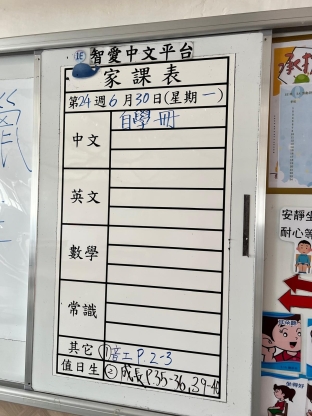 1E 智愛中文平台
家課表
第24週6月30日(星期一)
中文 自學冊
英文
數學
常識
其它 ①音工 P.2-3
值日生 ②成長 P.35-36,39-40
安靜坐
耐心等